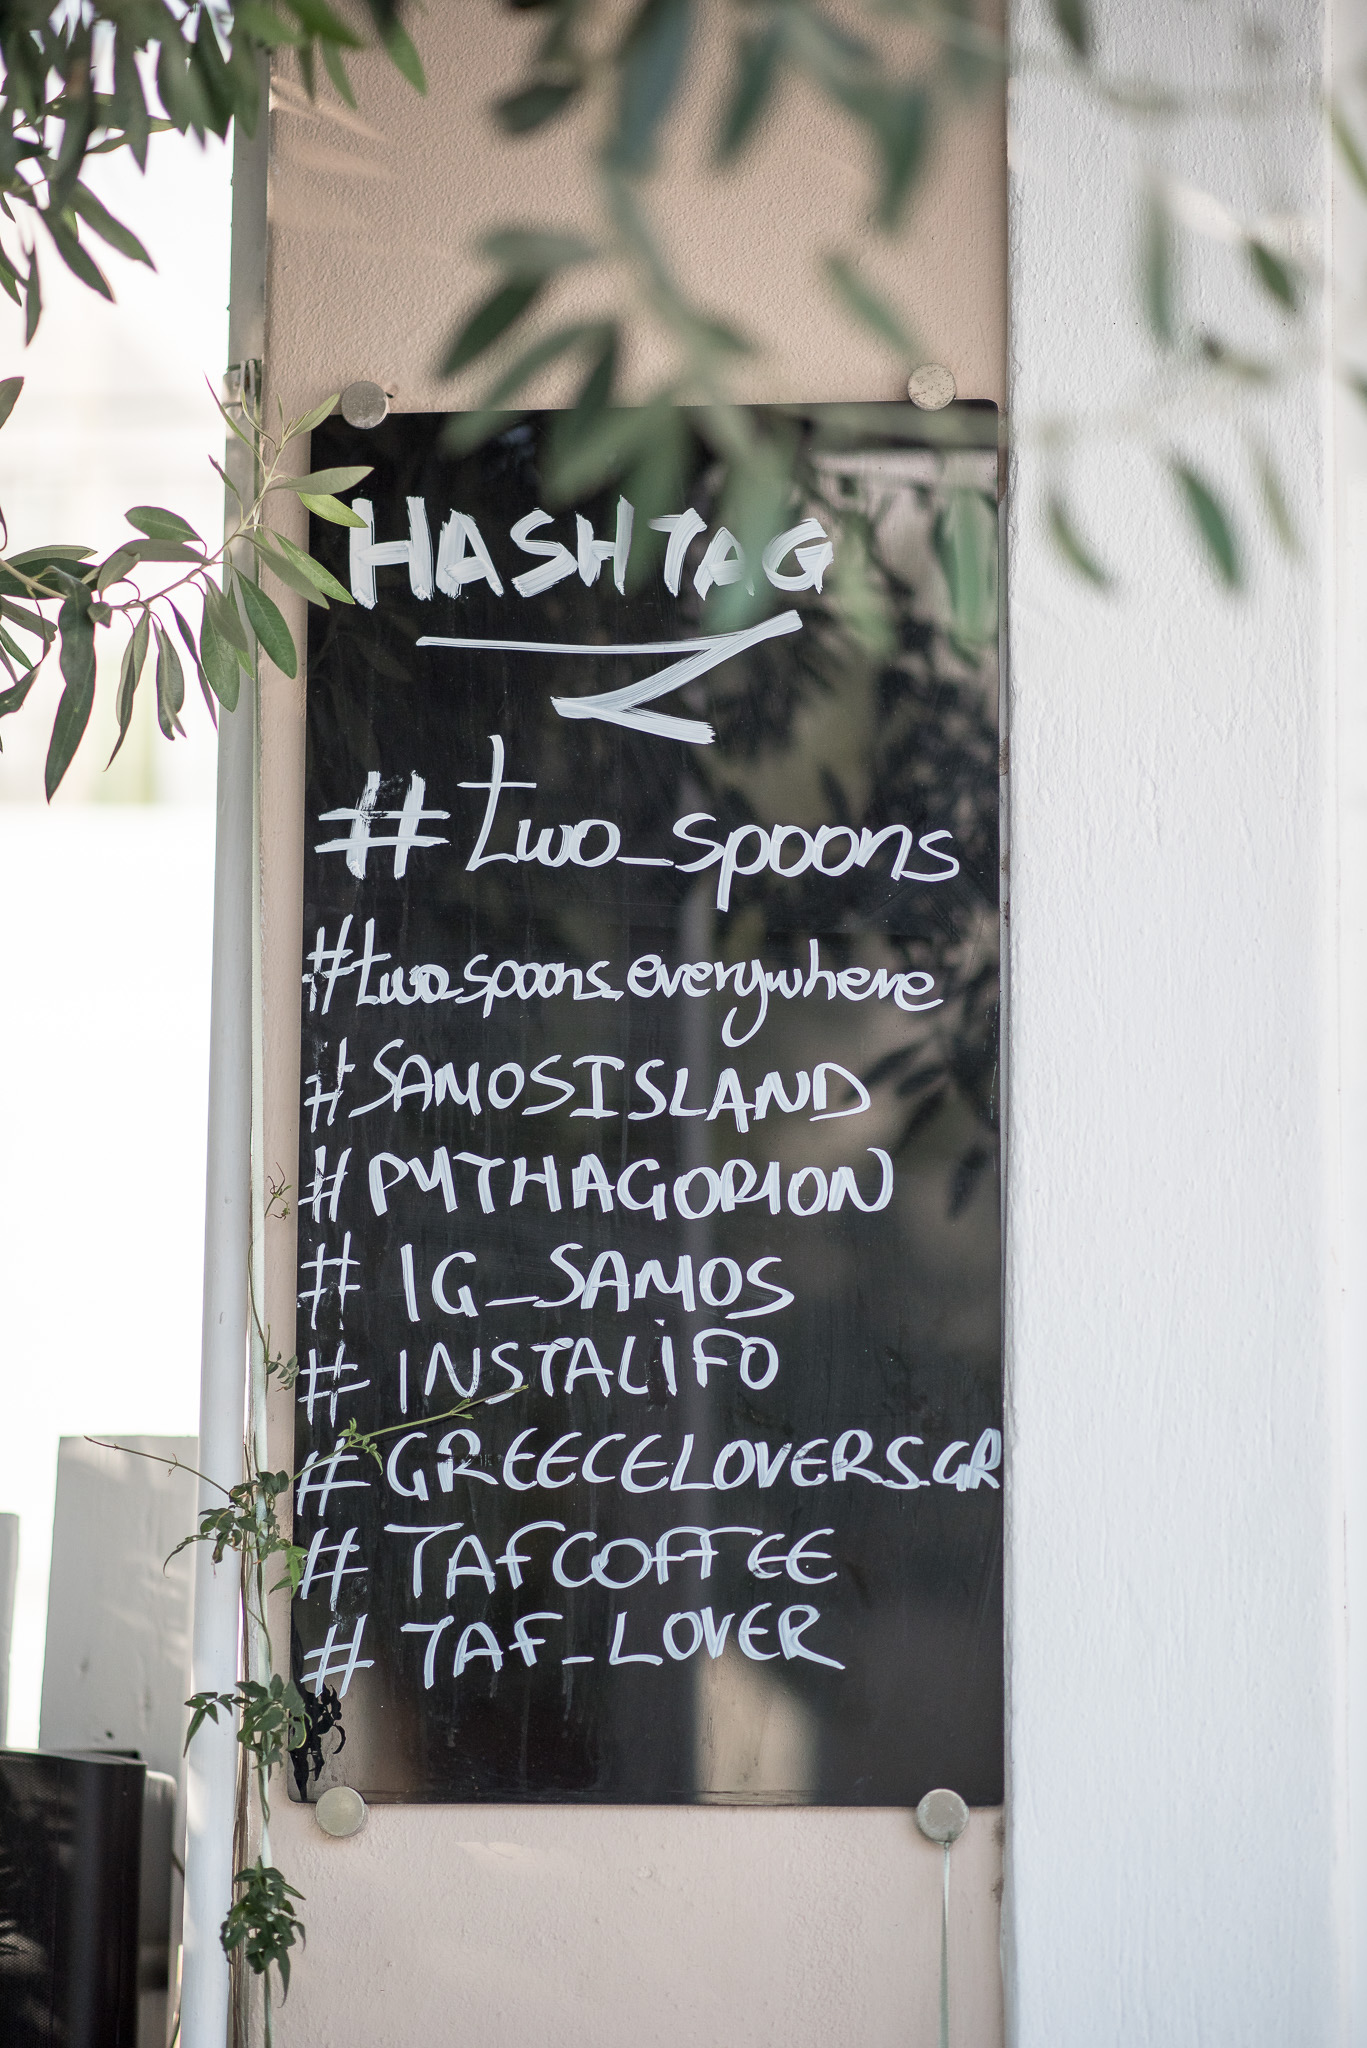 HASHTAG
#two_spoons
#two_spoons_everywhere
#SAMOSISLAND
#PYTHAGORION
# IG_SAMOS
# INSTALiFO
# GREECELOVERS.GR
# TAFCOFFEE
# TAF_LOVER